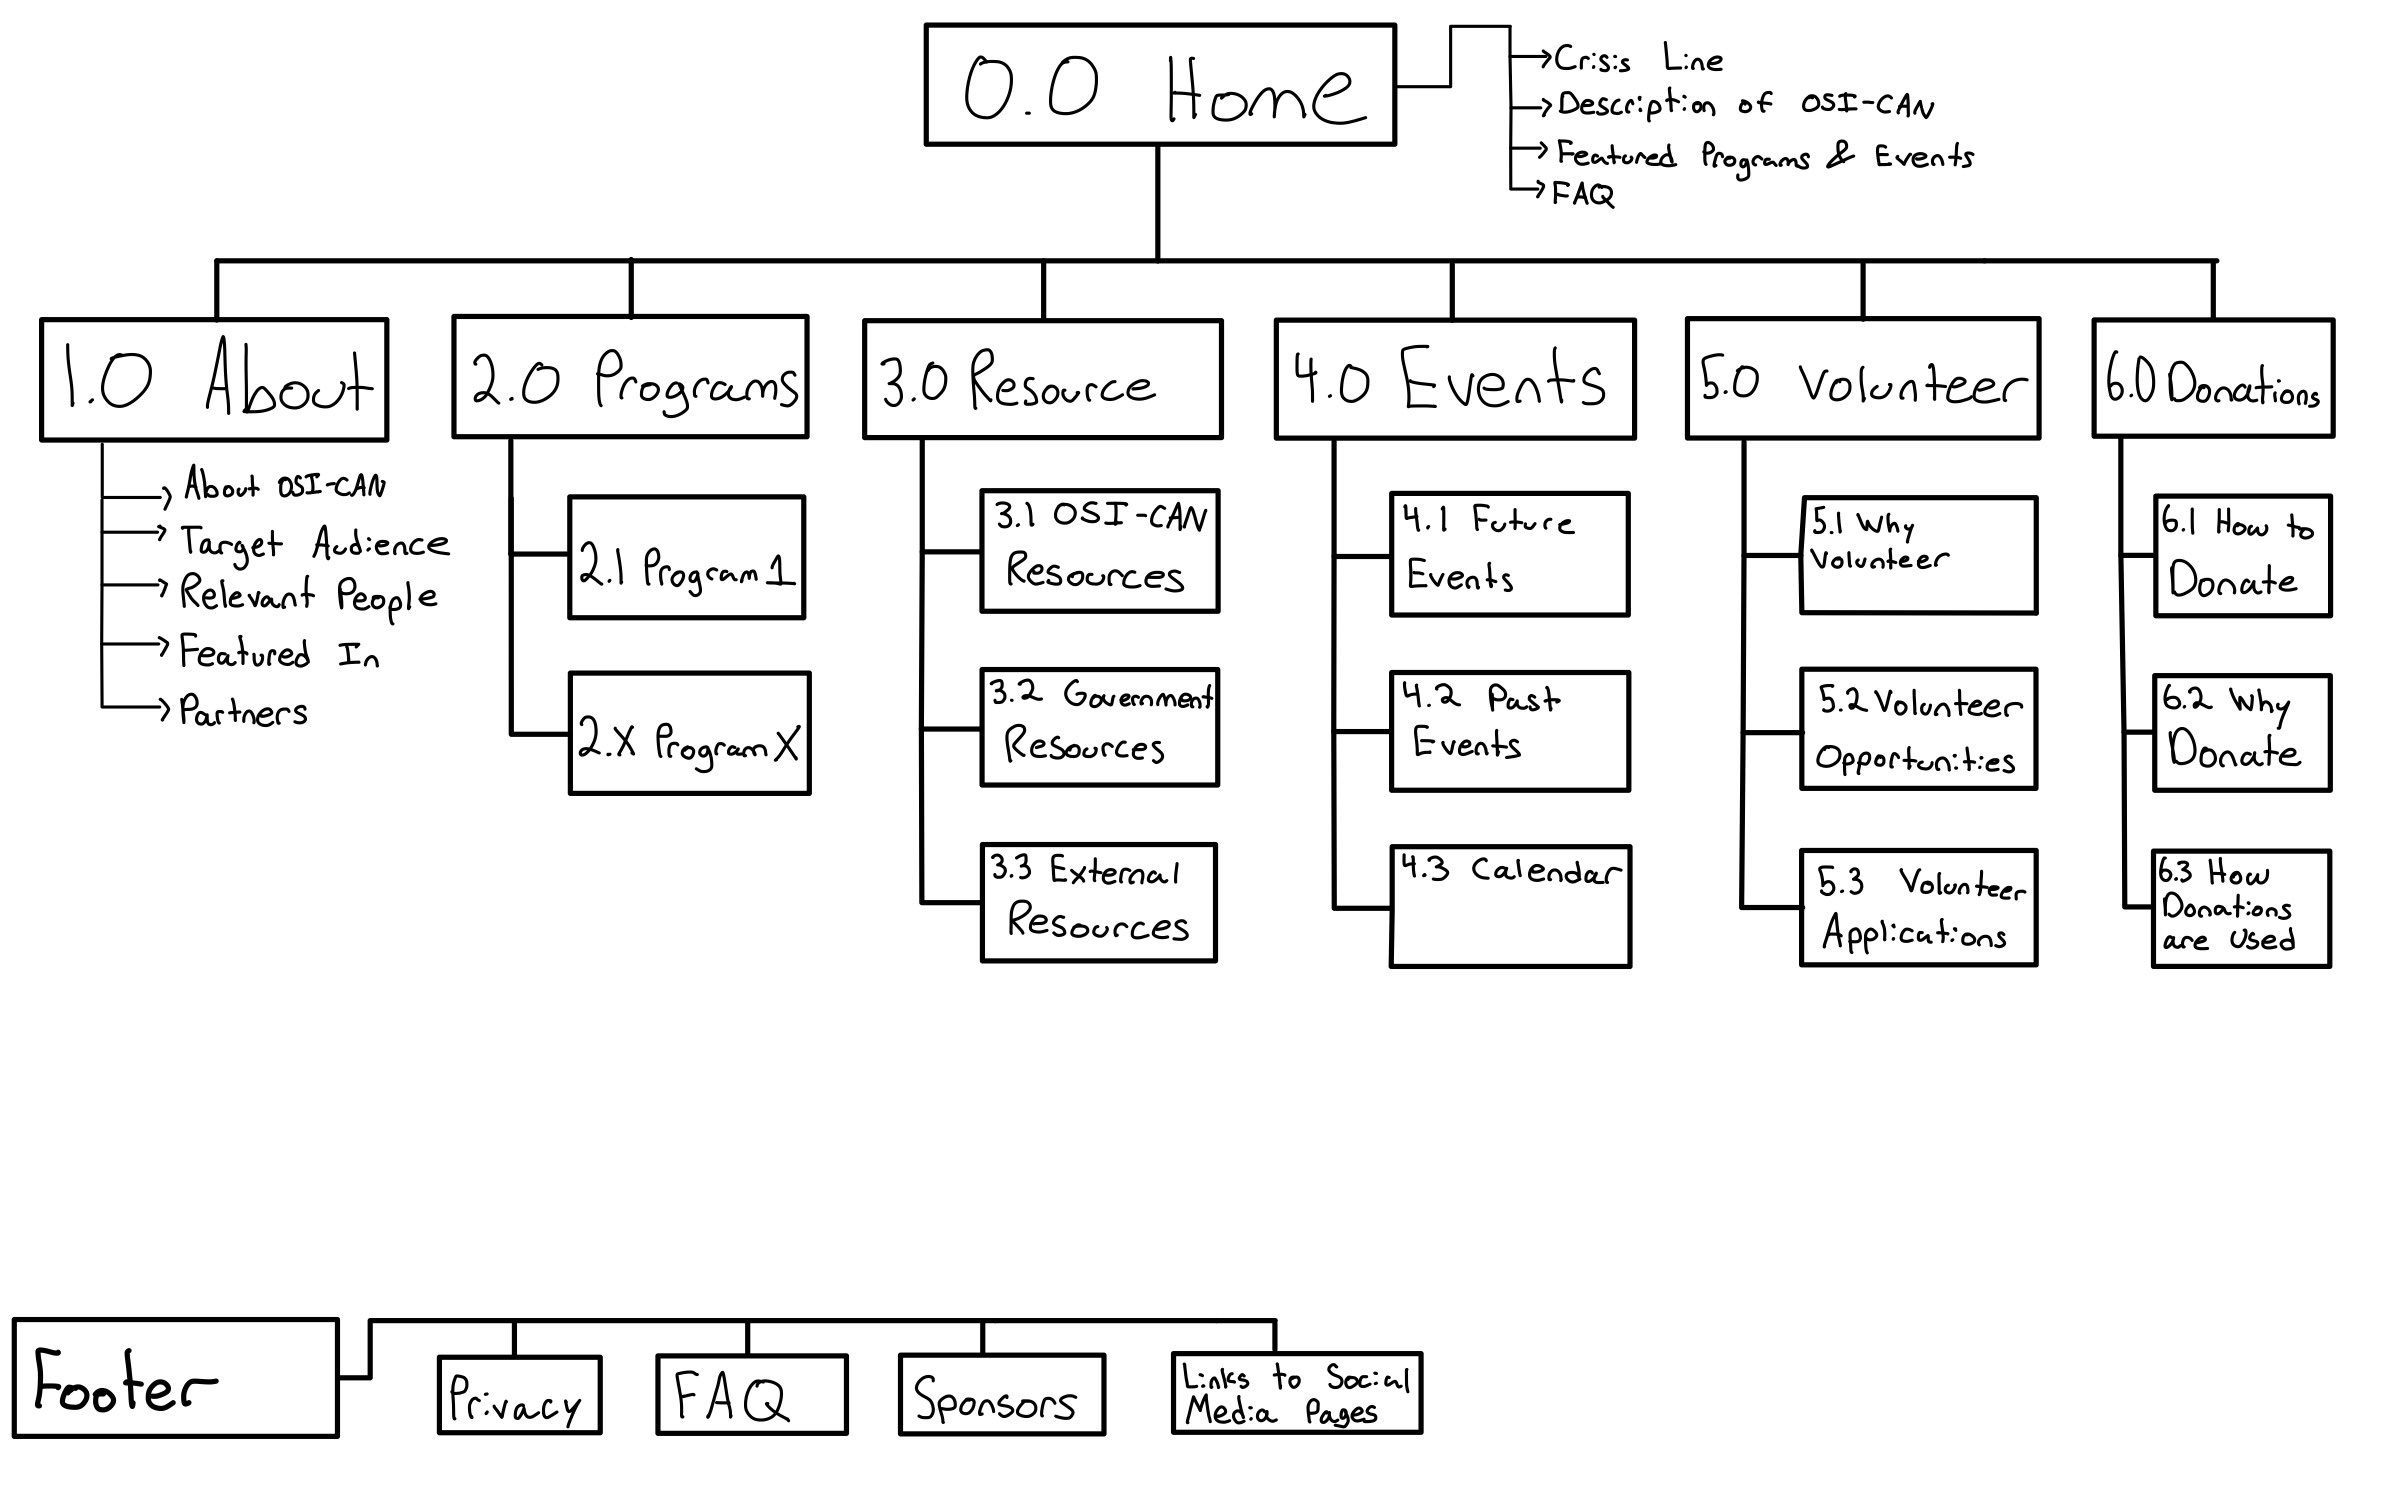 0.0 Home
Crisis Line
Description of OSI-CAN
Featured Programs & Events
FAQ
1.0 About
About OSI-CAN
Target Audience
Relevant People
Featured In
Partners
2.0 Programs
2.1 Program 1
2.X Program X
3.0 Resource
3.1 OSI-CAN
Resources
3.2 Government
Resources
3.3 External
Resources
4.0 Events
4.1 Future
Events
4.2 Past
Events
4.3 Calendar
5.0 Volunteer
5.1 Why
Volunteer
5.2 Volunteer
Opportunities
5.3 Volunteer
Applications
6.0 Donations
6.1 How to
Donate
6.2 Why
Donate
6.3 How
Donations
are Used
Footer
Privacy
FAQ
Sponsors
Links to Social
Media Pages